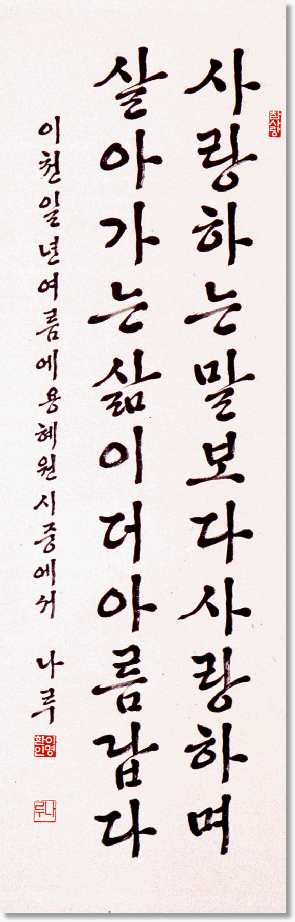 사랑하는말보다사랑하며
살아가는삶이더아름답다
이천일년여름에용혜원시중에서 나루
나루